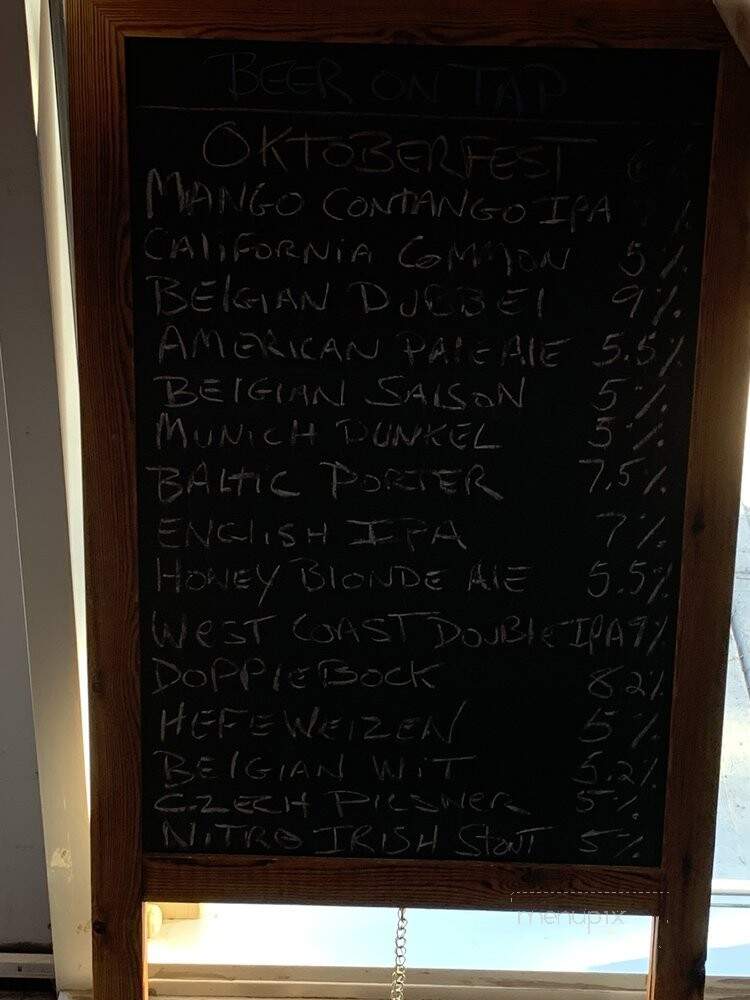 BEER ON TAP
OKTOBERFEST
MANGO CONTANGO IPA %
CALIFORNIA COMMON 5%
BELGIAN DUBBEL 9%
AMERICAN PALE ALE 5.5%
BELGIAN SAISON 5%
MUNICH DUNKEL 5%
BALTIC PORTER 7.5%
ENGLISH IPA 7%
HONEY BLONDE ALE 5.5%
WEST COAST DOUBLE IPA 9%
DOPPLEBOCK 8.2%
HEFEWEIZEN 5%
BELGIAN WIT 5.2%
CZECH PILSNER 5%
NITRO IRISH STOUT 5%
menupix